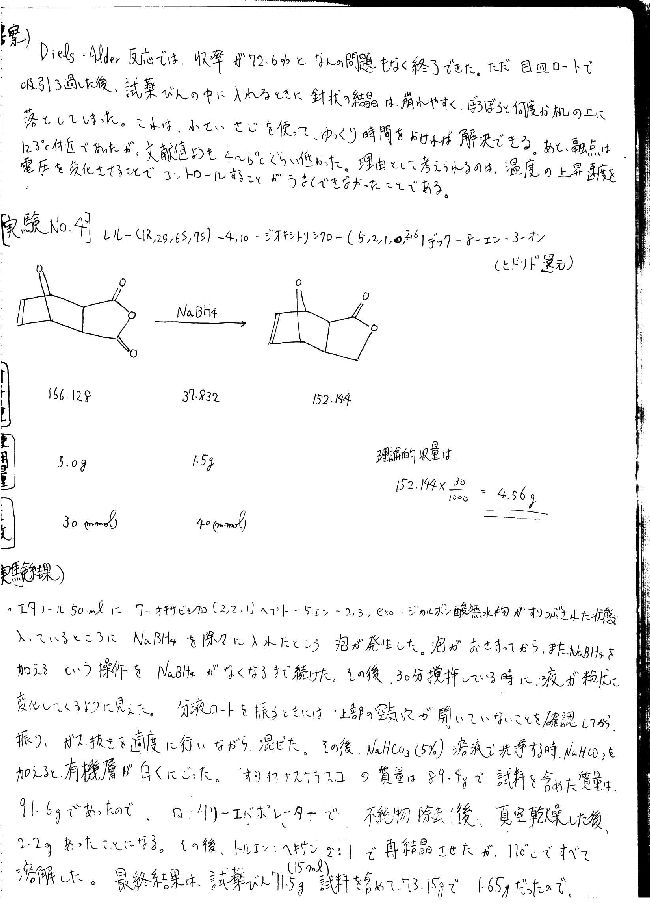 察)
Diels-Alder 反応では、収率が72.6%となんの問題もなく終了できた。ただ目皿ロートで
吸引ろ過した後、試薬びんの中に入れるときに針状の結晶は崩れやすく、ぽろぽろと何度か机の上に
落としてしまった。これは、小さいさじを使って、ゆっくり時間をかければ解決できる。あと、融点は
123℃付近であったが、文献値よりも 低かった。理由として考えられるのは、温度の上昇速度を
電圧を変化させることでコントロールすることがうまくできなかったことである。
[実験 No.4] -(1R,2S,6S,7S)-4,10-ジオキサトリシクロ-(5,2,1,0,2,6)デック-8-エン-3-オン
(ヒドリド還元)
O O O O
NaBH4
O O O
166.128 37.832 152.144
5.0g 1.5g 理論的収量は
152.144×30/1000 = 4.56g
30(mmol) 40(mmol)
実験結果)
・エタノール50mlに 7-オキサビシクロ(2,2,1)ヘプト-5-エン-2,3,exo-ジカルボン酸無水物がすりつぶした状態
入っているところに NaBH4を徐々に入れたところ 泡が発生した。泡がおさまってから、またNaBH4を
加える という操作を NaBH4がなくなるまで続けた。その後、30分撹拌している時に、液が 
変化してくるように見えた。 分液ロートを振るときには 上部の空気穴が開いていないことを確認してから
振り、ガス抜きを適度に行いながら 混ぜた。その後、NaHCO3(5%)溶液で洗浄する時、NaHCO3を
加えると、有機層が白くにごった。 ナリ型フラスコの質量は 89.4gで 試料を含めた質量は、
91.6gであったので、ロータリーエバポレーターで 不純物除去後、真空乾燥した後、
2.2gあったことになる。その後、トルエン:ヘキサン 2:1で再結晶させたが、110℃ですべて
溶解した。 最終結果は、試薬びん 11.5g (15ml) 試料を含めて、73.15gで 1.65gだったので、